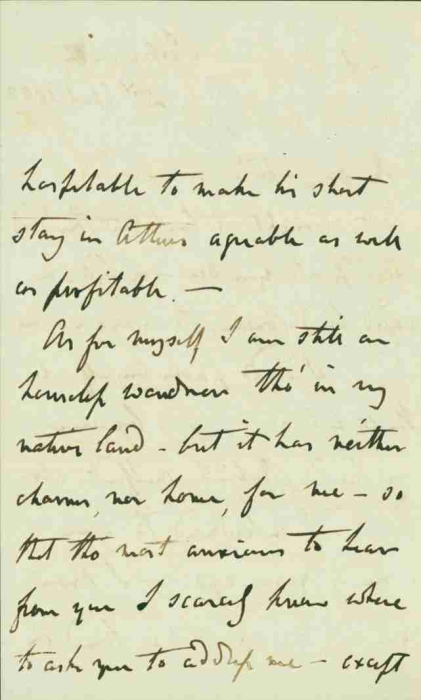 hospitable to make his short
stay in Athens agreable as well
as profitable. —
As for myself I am still an
houseless wanderer tho' in my
native land - but it has neither
charms, nor home, for me - so
that tho most anxious to hear
from you I scarcely know where
to ask you to address me - except